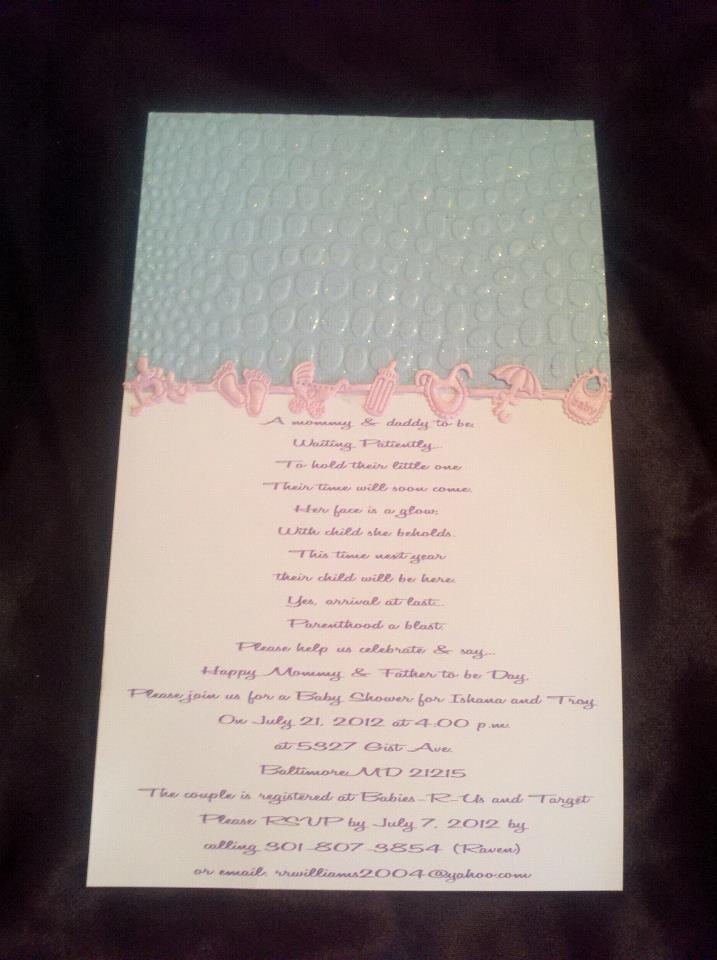 Baby
A mommy & daddy to be.
Waiting Patiently...
To hold their little one
Their time will soon come.
Her face is a glow;
With child she beholds.
This time next year
their child will be here.
Yes, arrival at last...
Parenthood a blast.
Please help us celebrate & say...
Happy Mommy & Father to be Day.
Please join us for a Baby Shower for Ishana and Troy
On July 21, 2012 at 4:00 p.m.
at 5327 Gist Ave.
Baltimore, MD 21215
The couple is registered at Babies-R-Us and Target
Please RSVP by July 7, 2012 by
calling 301-807-3854 (Raven)
or email: rrwilliams2004@yahoo.com